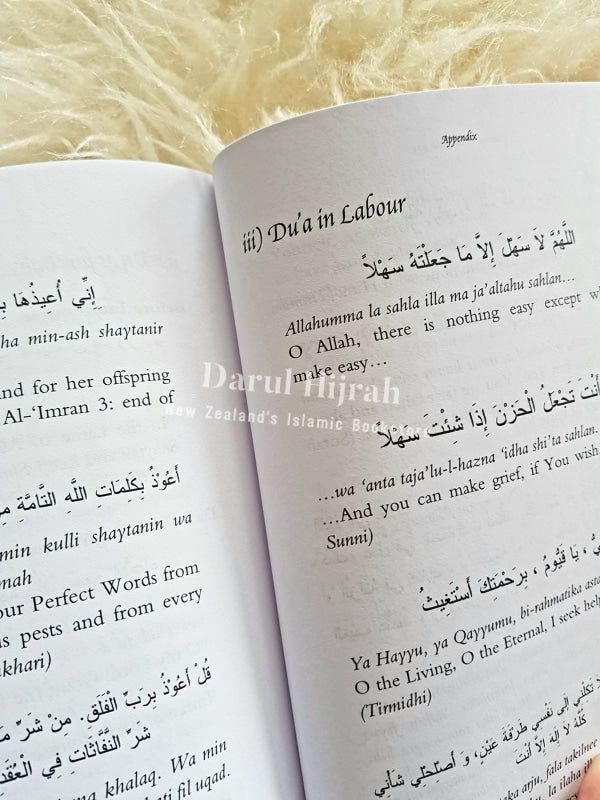 إِنِّي أُعِيذُهَا
ha min-ash shaytanir
and for her offspring
Al-‘Imran 3: end of
أَعُوذُ بِكَلِمَاتِ اللَّهِ التَّامَّةِ
min kulli shaytanin wa
mah
our Perfect Words from
s pests and from every
khari)
قُلْ أَعُوذُ بِرَبِّ الْفَلَقِ. مِنْ شَرِّ مَا
شَرِّ النَّفَّاثَاتِ فِي الْعُقَدِ
ma khalaq. Wa min
ati fil uqad.
Appendix
iii) Du‘a in Labour
اللَّهُمَّ لاَ سَهْلَ إِلاَّ مَا جَعَلْتَهُ سَهْلاً
Allahumma la sahla illa ma ja’altahu sahlan…
O Allah, there is nothing easy except
make easy…
أَنْتَ تَجْعَلُ الْحَزْنَ إِذَا شِئْتَ سَهْلاً
…wa ‘anta taja’lu-l-hazna ‘idha shi’ta sahlan.
…And you can make grief, if You wish,
Sunni)
يَا قَيُّومُ ، بِرَحْمَتِكَ أَسْتَغِيثُ
Ya Hayyu, ya Qayyumu, bi-rahmatika
O the Living, O the Eternal, I seek
(Tirmidhi)
تَكِلْنِي إِلَى نَفْسِي طَرْفَةَ عَيْنٍ، وَ أَصْلِحْلِي شَأْنِي
كُلَّهُ لاَ إِلَهَ إِلاَّ أَنْتَ
arju, fala takilnee
la ilaha
Darul Hijrah
New Zealand's Islamic Bookstore